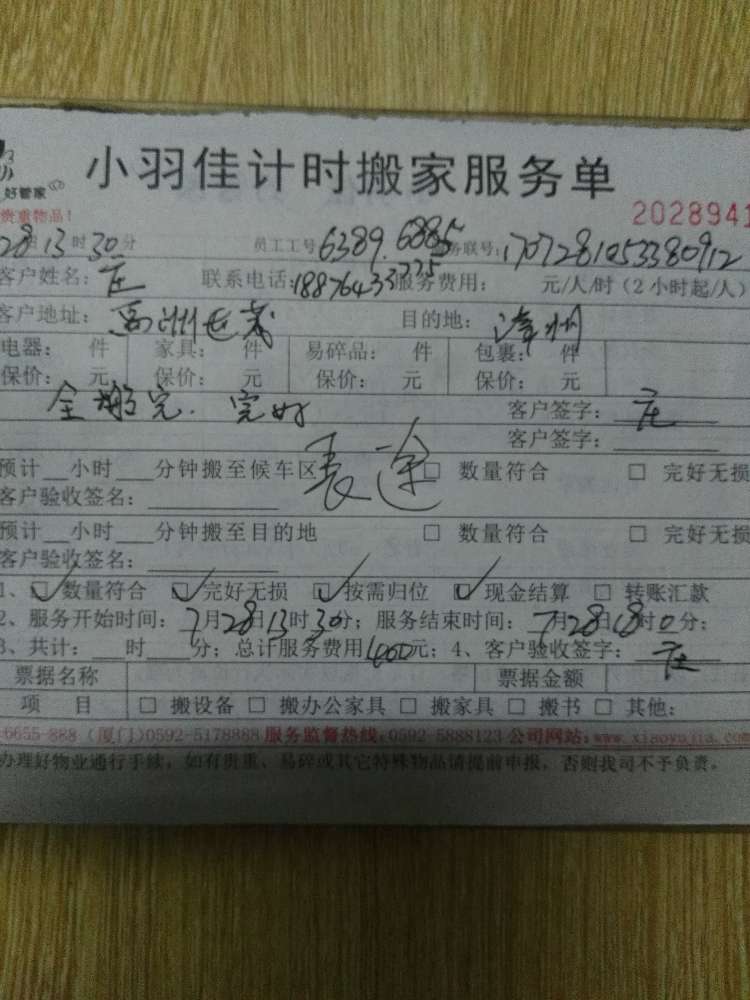 小羽佳计时搬家服务单
好管家
贵重物品!
2028941
28日13时30分 员工工号6389.6885 务联号:1707281053380912
客户姓名:庄 联系电话:18876433775 服务费用: 元/人/时(2小时起/人)
客户地址: 禹洲 目的地:漳州
电器: 件 家具: 件 易碎品: 件 包裹: 件
保价: 元 保价: 元 保价: 元 保价: 元
全搬完.完好 客户签字:庄
客户签字:
长途
预计__小时___分钟搬至候车区 □ 数量符合 □ 完好无损
客户验收签名:
预计__小时___分钟搬至目的地 □ 数量符合 □ 完好无损
客户验收签名:
1、☑数量符合 ☑完好无损 ☑按需归位 ☑现金结算 □ 转账汇款
2、服务开始时间:7月28日13时30分;服务结束时间:7月28日18时0分;
3、共计:___时____分;总计服务费用1400元;4、客户验收签字:庄
票据名称 票据金额
项 目 □ 搬设备 □ 搬办公家具 □ 搬家具 □ 搬书 □ 其他:
6655-888 (厦门)0592-5178888 服务监督热线:0592-5888123 公司网站:www.xiaoyujia.com
办理好物业通行手续,如有贵重、易碎或其它特殊物品请提前申报,否则我司不予负责。